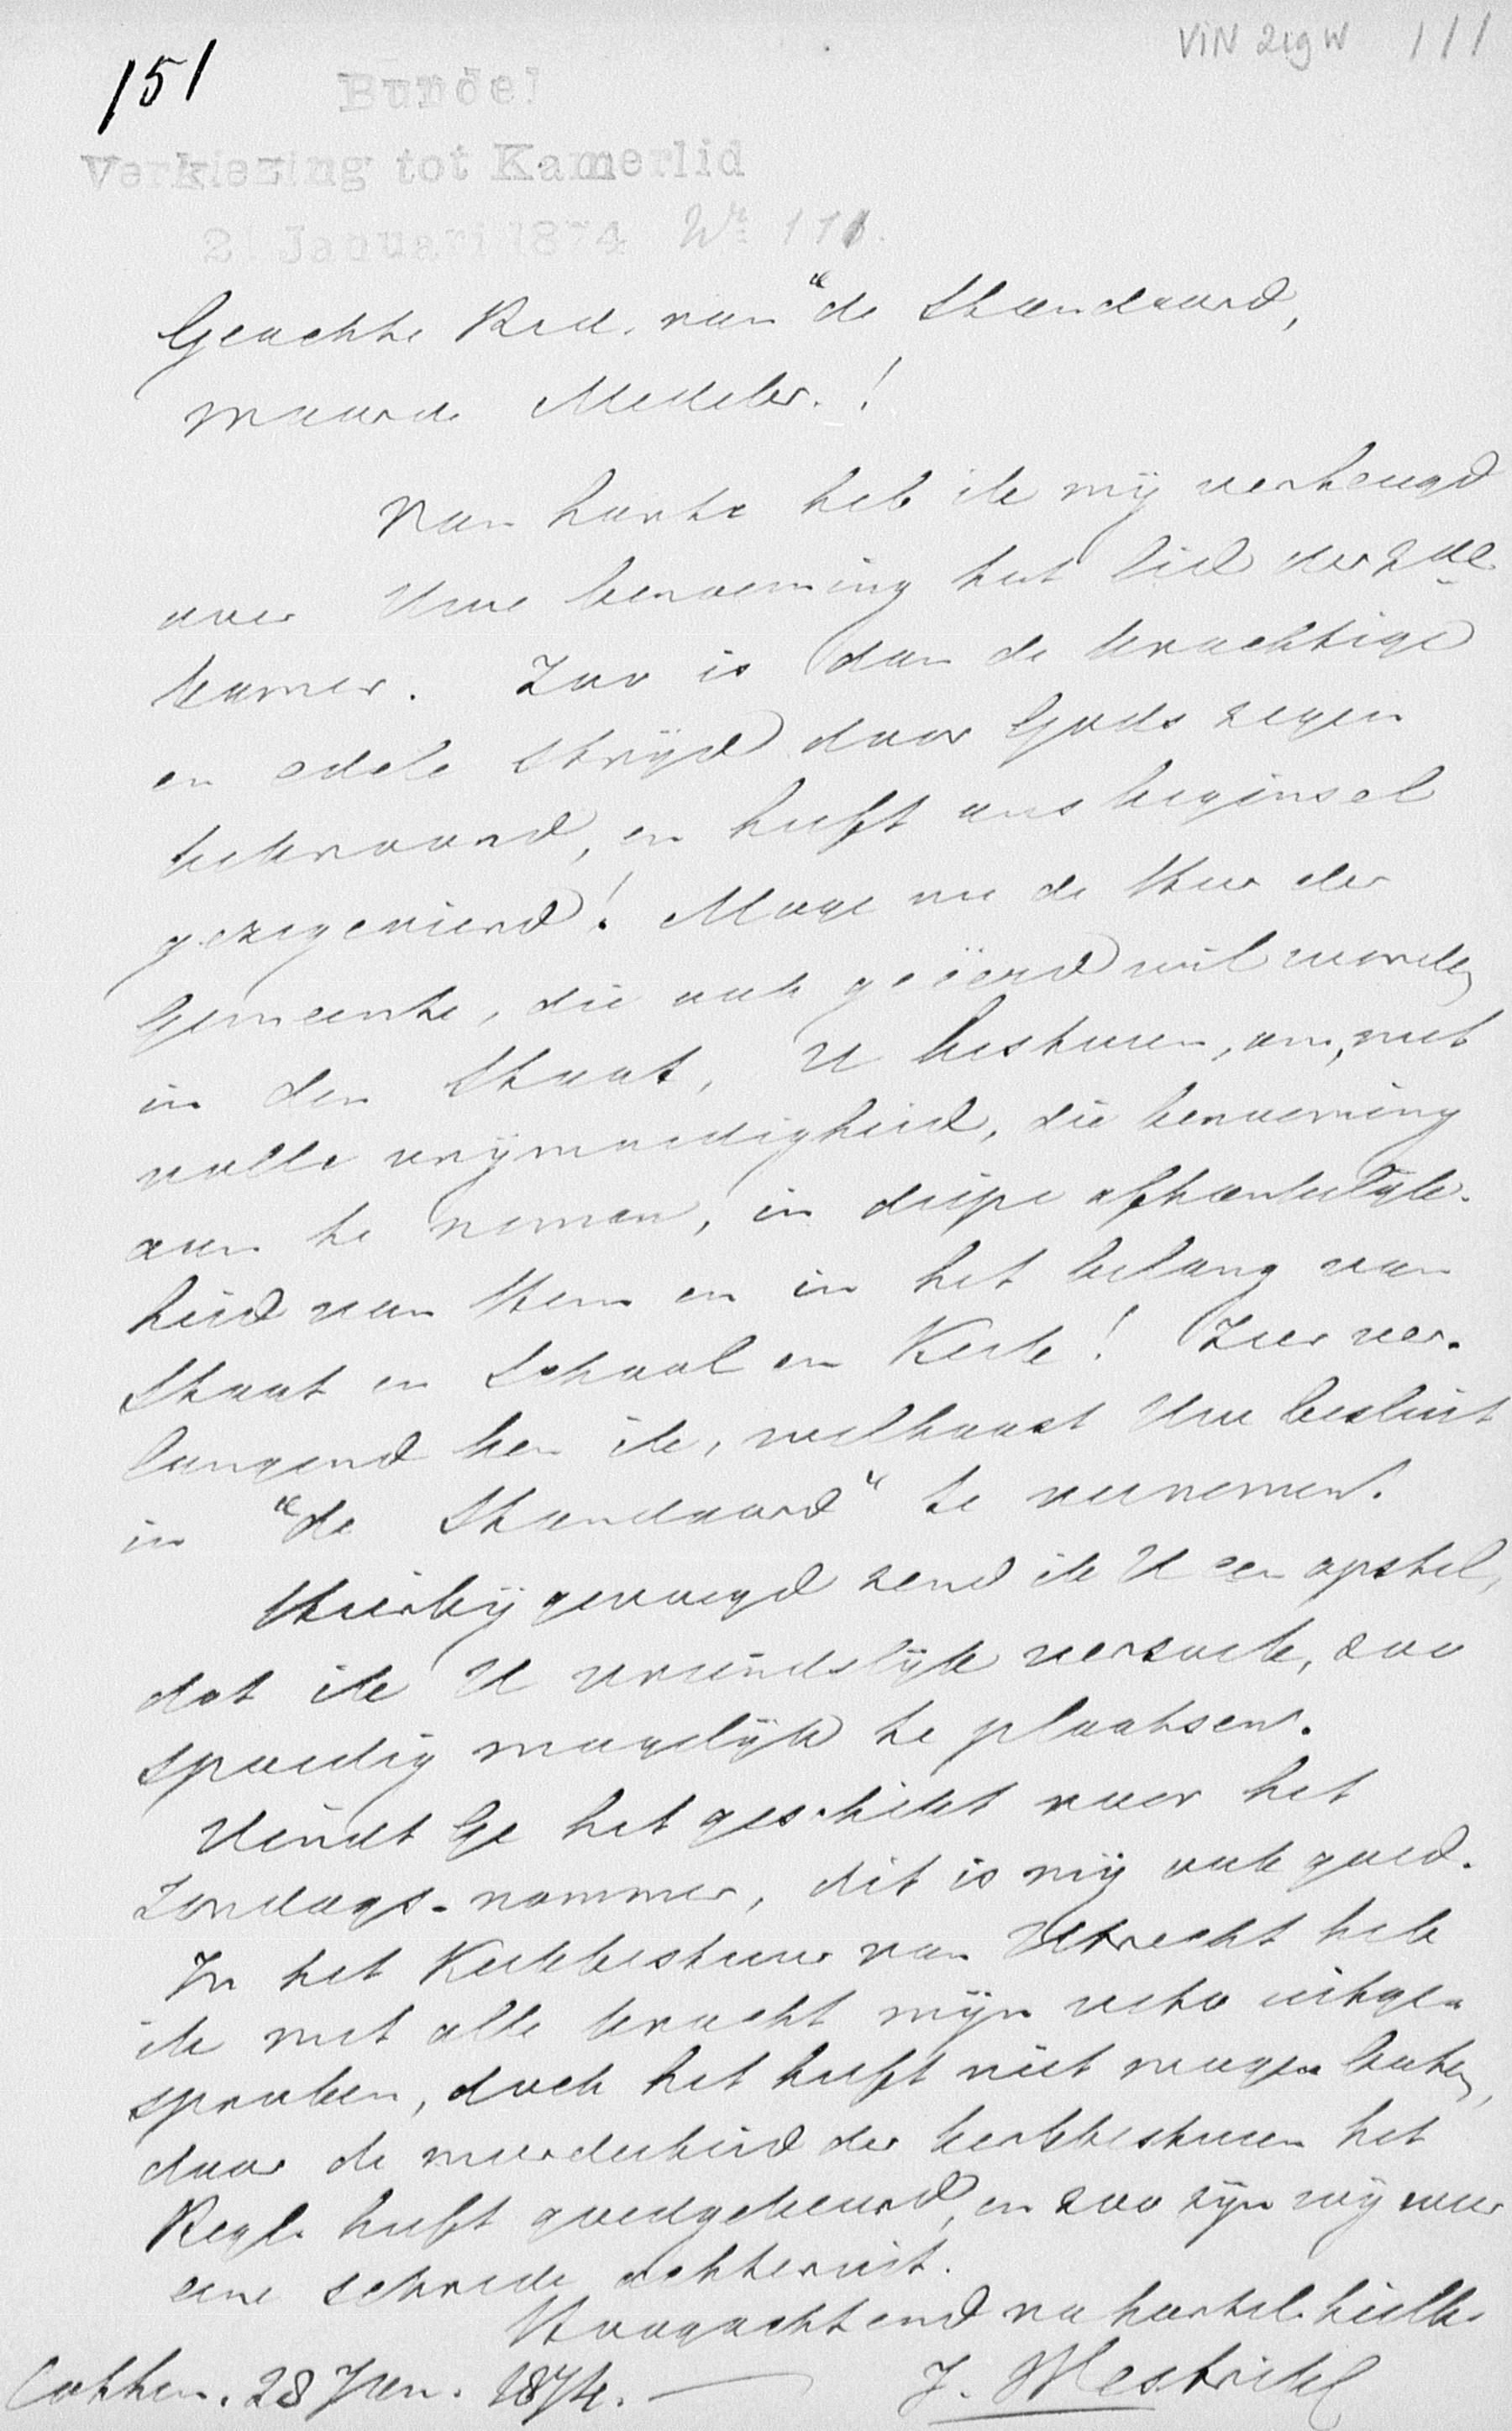 VIN 2igW 111
151
Bundel
Verkiezing tot Kamerlid
21 Januari 1874 No 111.
Geachte Red. van "de Standaard,
waarde Medebr.!
Van harte heb ik mij verheugd
over Uwe benoeming tot lid der 2de
kamer. Zoo is dan de krachtige
en edele strijd door Gods zegen
bekroond, en heeft ons beginsel
gezegevierd! Moge nu de Heer der
Gemeente, die ook geëerd wil worden
in den Staat, U besturen, om, met
volle vrijmoedigheid, die benoeming
aan te nemen, in diepe afhankelijk-
heid van Hem en in het belang van
Staat en School en Kerk! Zeer ver-
langend ben ik, welhaast Uw besluit
in "de Standaard" te vernemen.
Hierbij gevoegd zend ik U een opstel,
dat ik U vriendelijk verzoek, zoo
spoedig mogelijk te plaatsen.
Vindt Ge het geschikt voor het
Zondags-nommer, dit is mij ook goed.
In het Kerkbestuur van Utrecht heb
ik met alle kracht mijn veto uitge-
sproken, doch het heeft niet mogen baten,
daar de meerderheid der kerkbesturen het
Regl. heeft goedgekeurd, en zoo zijn wij weer
eene schrede achteruit.
Hoogachtend na hartel. heilb.
Cothen. 28 Jan. 1874. J. Westrik